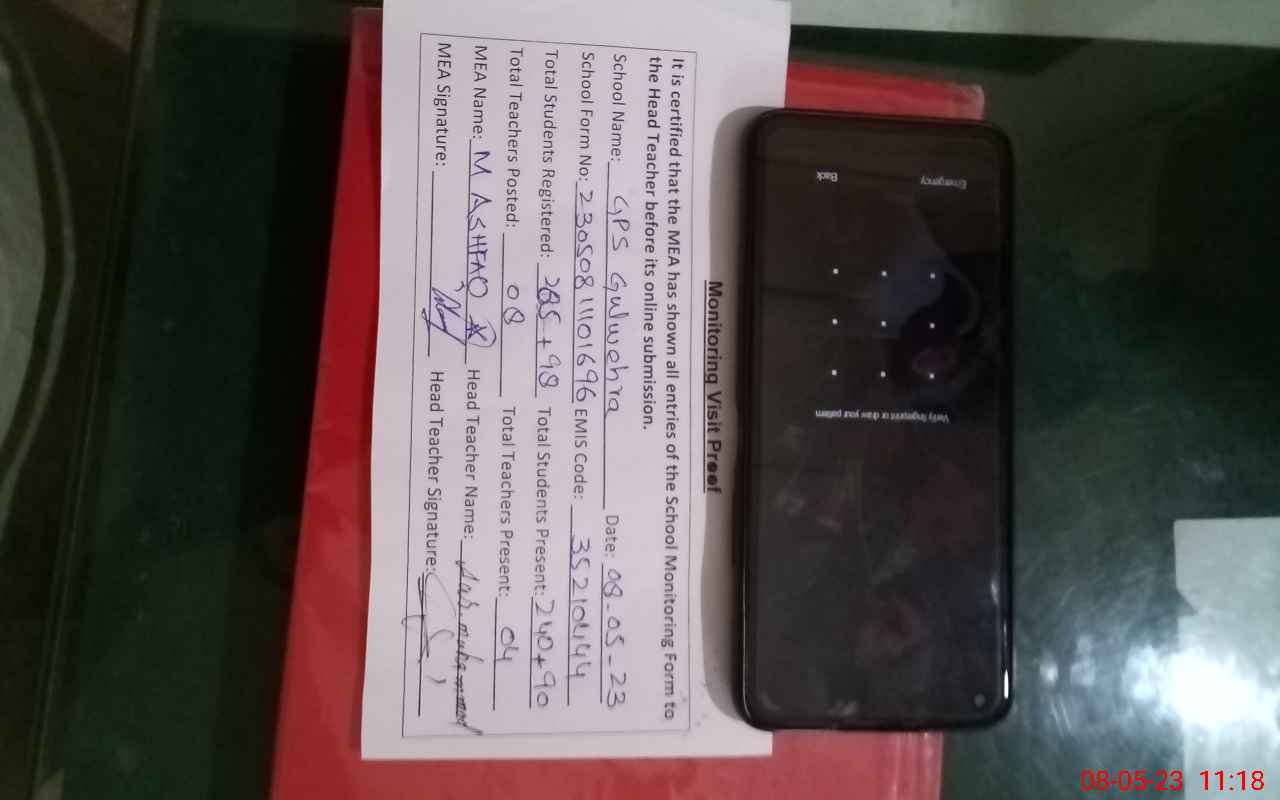 Monitoring Visit Proof
It is certified that the MEA has shown all entries of the School Monitoring Form to
the Head Teacher before its online submission.
School Name: GPS Gulwehra Date: 08-05-23
School Form No: 2305081101696 EMIS Code: 35210444
Total Students Registered: 285+98 Total Students Present: 240+90
Total Teachers Posted: 08 Total Teachers Present: 04
MEA Name: M ASHFAQ Head Teacher Name:
MEA Signature: Head Teacher Signature:
Emergency
Back
Verify fingerprint or draw your pattern
08-05-23 11:18